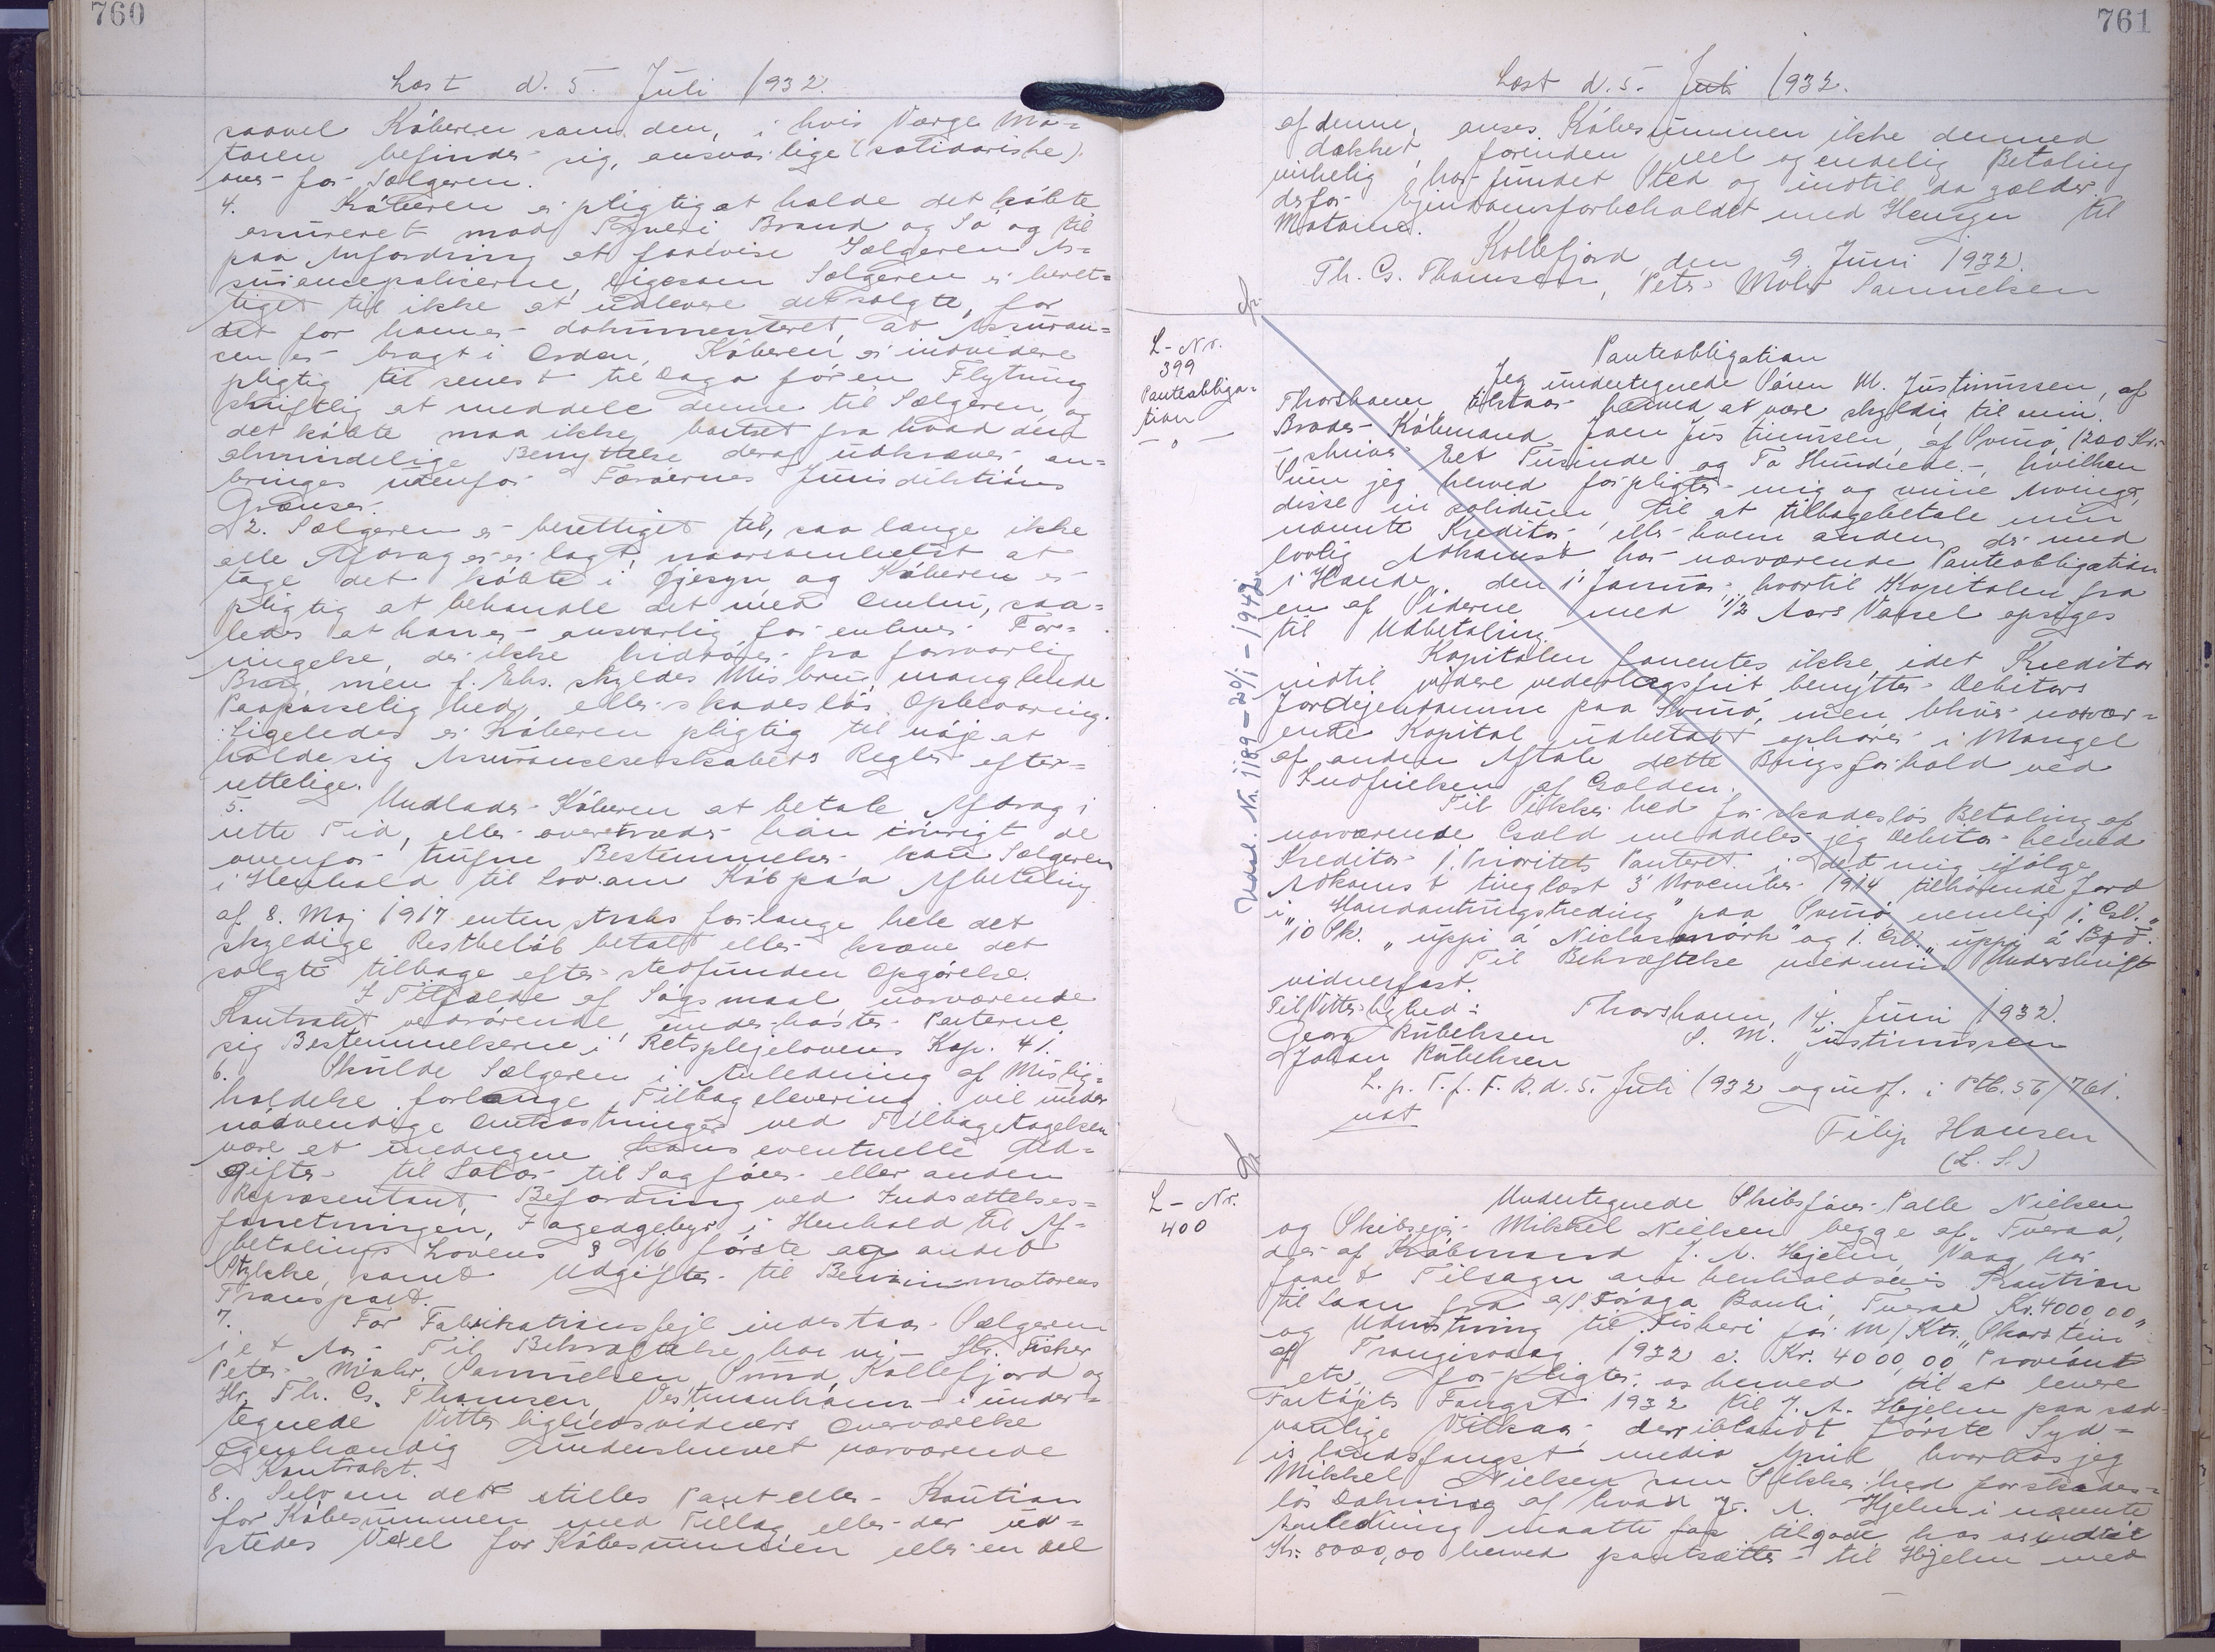 760
Læst d. 5. Juli 1932.
saavel Köberen som den, i hvis Værge Mo=
toren befinder sig, ansvarlige (solidariske)
over for Sælgeren.
4. Köberen er pligtig at holde det köbte
assureret mod Tyveri Brand og Sö og til
paa Anfordring at forevise Sælgeren As=
surancepolicerne, ligesom Sælgeren er beret=
tiget til ikke at udlevere det solgte, för
det for ham er dokumenteret, at Assuran=
cen er bragt i Orden, Köberen er indvidere
pligtig til senest tre Dage för en Flytning
skriftlig at meddele denne til Sælgeren, og
det köbte maa ikke, bortset fra hvad den
almindelige Benyttelse deraf udkræver, an=
bringes udenfor Færöernes Jurisdiktions
Grænser.
2. Sælgeren er berettiget til, saa længe ikke
alle Afdrag er erlagt, naarsomhelst at
tage det köbte i Öjesyn og Köberen er
pligtig at behandle det med Omhu, saa=
ledes at han er ansvarlig for enhver For=
ringelse, der ikke hidrörer fra forsvarlig
Brug, men f. Eks. skyldes Misbrug, manglende
Paapasselighed, eller skadeslös Opbevaring.
Ligeledes er Köberen pligtig til nöje at
holde sig Assuranceselskabets Regler efter=
rettelige.
5. Undlader Köberen at betale Afdrag i
rette Tid, eller overtræder han iövrigt de
ovenfor trufne Bestemmelser kan Sælgeren
i Henhold til Lov om Köb paa Afbetaling
af 8. Maj 1917 enten straks forlange hele det
skyldige Restbelöb betalt eller kræve det
solgte tilbage efter stedfunden Opgörelse.
I Tilfælde af Sögsmaal nærværende
Kontrakt vedrörende, underkaster Parterne
sig Bestemmelserne i Retsplejelovens Kap. 41.
6. Skulde Sælgeren i Anledning af Mislig=
holdelse forlange Tilbagelevering vil under
nödvendige Omkostninger ved Tilbagetagelsen
være at medregne hans eventuelle Ud=
gifter til Salær til Sagförer eller anden
Repræsentant, Befordring ved Indsættelses=
forretningen, Fogedgebyr i Henhold til Af=
betalings Lovens § 16 förste og andet
Stykke, samt Udgifter til Benzinmotorens
Transport.
7. For Fabrikationsfejl indestaar Sælgeren
i et Aar. Til Bekræftelse har vi Hr. Fisker
Peter Mohr Samuelsen, Sund, Kollefjord og
Hr. Th. Cs. Thomsen, Vestmanhavn i under=
tegnede Vitterlighedsvidners Overværelse
egenhændig underskrevet nærværende
Kontrakt.
8. Selv om der stilles Pant eller Kaution
for Köbesummen med Tillæg, eller der ud=
stedes Vexel for Köbesummen eller en Del
761
Læst d. 5. Juli 1932.
af denne, anses Köbesummen ikke dermed
dækket, forinden reel og endelig Betaling
virkelig har fundet Sted og indtil da gælder
derfor Ejendomsforbeholdet med Hensyn til
Motoren.
Kollefjord, den 9. Juni 1932.
Th. Cs. Thomsen, Peter Mohr Samuelsen
L-Nr.
399
Panteobliga=
tion
— o —
Udsl. Nr. 1189 - 20/1 - 1942.
Panteobligation
Jeg undertegnede Sören M. Justinussen, af
Thorshavn tilstaar herved at være skyldig til min
Broder Köbmand Joen Justinussen, af Svinö, 1200 Kr.
skriver Eet Tusinde og To Hundrede -, hvilken
Sum jeg herved forpligter mig og mine Arvinger,
disse in solidum, til at tilbagebetale min
nævnte Kreditor, eller hvem anden, der med
lovlig Adkomst har nærværende Panteobligation
i Hænde, den 1' Januar, hvortil Kapitalen fra
en af Siderne med 1/2 Aars Varsel opsiges
til Udbetaling.
Kapitalen forrentes ikke, idet Kreditor
indtil videre vederlagsfrit benytter Debitors
Jordejendomme paa Svinö, men bliver nærvær=
ende Kapital udbetalt ophörer i Mangel
af anden Aftale dette Brugsforhold ved
Indfrielsen af Gælden.
Til Sikkerhed for skadeslös Betaling af
nærværende Gæld meddeler jeg Debitor herved
Kreditor 1. Prioritets Panteret i det mig ifölge
Adkomst tinglæst 3' November 1914 tilhörende Jord
i "Handantungstreding" paa Svinö nemlig 1. Gl.
10 Sk. "uppi á Niclasmörk" og 1. Gl. "uppi á Bø".
Til Bekræftelse med min Underskrift
vidnesfast.
Til Vitterlighed: Thorshavn, 14. Juni 1932.
Georg Rubeksen S. M. Justinussen
Johan Rubeksen
L. p. T. f. F. R. d. 5. Juli 1932 og indf. i Ptb. 56/761.
Filip Hansen
(L. S.)
L-Nr.
400
Undertegnede Skibsförer Palle Nielsen
og Skibsejer Mikkel Nielsen begge af Tveraa,
der af Köbmand J. A. Hjelm, Vaag har
faaet Tilsagn om henholdsvis Kaution
til Laan fra a/s Föroya Banki, Tveraa Kr. 4000,00
og Udrustning til Fiskeri for M/Ktr. "Thorstein"
af Trangisvaag 1932 c. Kr. 4000,00 Proviant
etc. forpligter os herved til at levere
Fartöjets Fangst 1932 til J. A. Hjelm paa sæd=
vanlige Vilkaar deriblandt förste Syd=
islandsfangst medio April, hvorhos jeg
Mikkel Nielsen som Sikkerhed for skades=
lös Dækning af hvad J. A. Hjelm i nævnte
Anledning maatte faa tilgode hos os indtil
Kr. 8000,00 herved pantsætter til Hjelm med